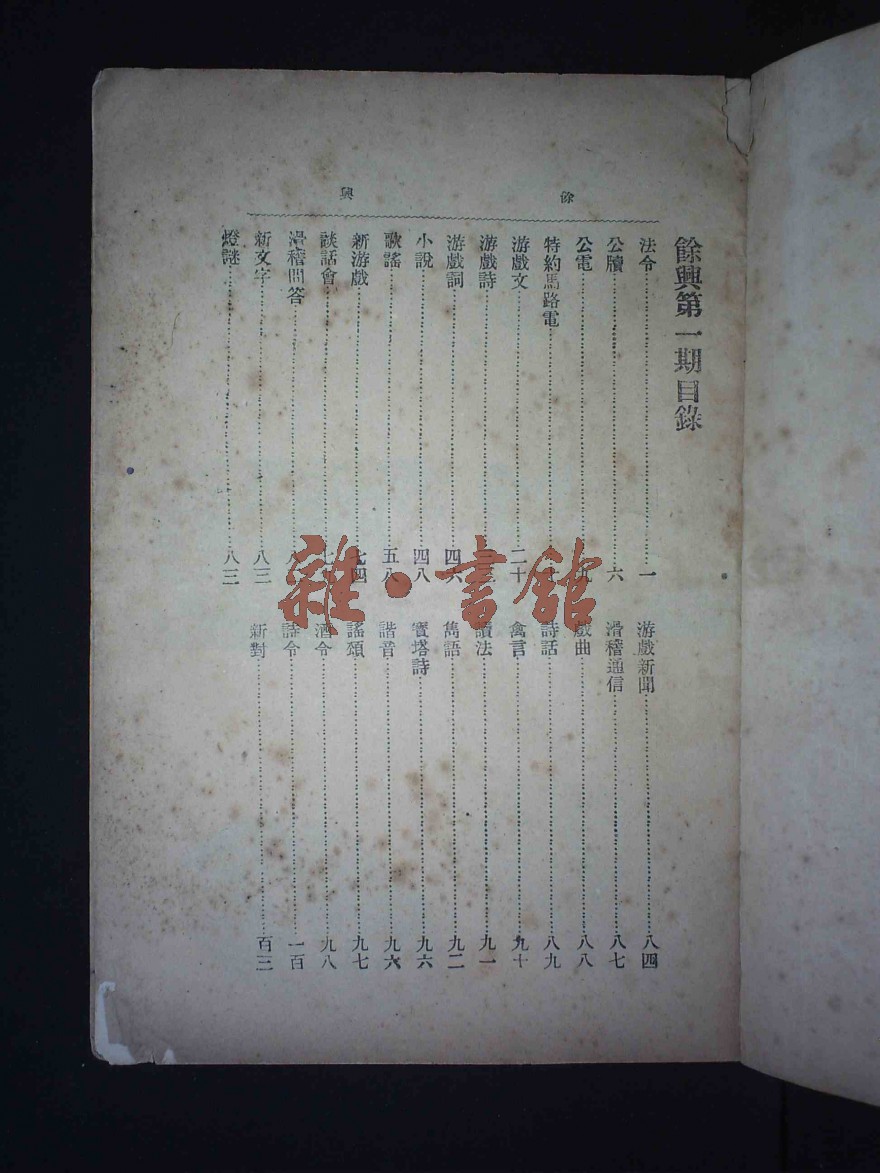 餘興
餘興第一期目錄
法令 一
公牘 六
公電
特約馬路電
游戲文 二十
游戲詩
游戲詞 四六
小說 四八
歌謠 五八
新游戲 七四
談話會
滑稽問答
新文字 八三
燈謎 八三
游戲新聞 八四
滑稽通信 八七
戲曲 八八
詩話 八九
寓言 九十
讀法 九一
雋語 九二
寶塔詩 九六
諧音 九六
謠頌 九七
酒令 九八
詩令 一百
新對 百三
雜·書館